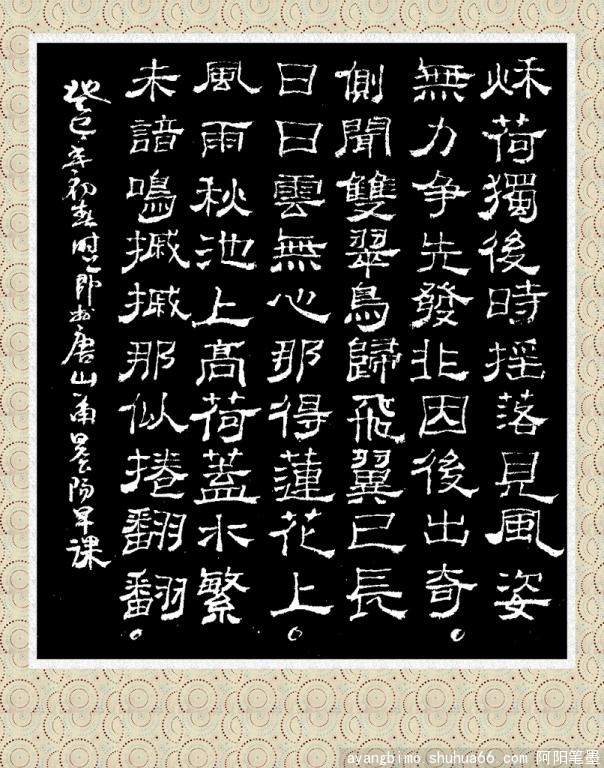 秋荷獨後時搖落見風姿
無力争先發非因後出奇
側聞雙翠鳥歸飛翼已長
日日雲無心那得蓮花上
風雨秋池上髙荷蓋水繁
未諳鳴摵摵那似捲翻翻
癸巳年初春时即於唐山阳早課
ayangbimo.shuhua66.com 阿阳笔墨